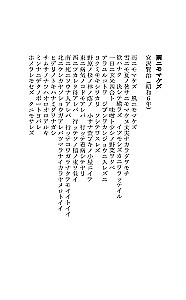 雨ニモマケズ
宮沢賢治(昭和6年)
雨ニモマケズ 風ニモマケズ
雪ニモ夏ノ暑サニモマケヌ 丈夫ナカラダヲモチ
慾ハナク 決シテ瞋ラズ イツモシズカニワラッテイル
一日ニ玄米四合ト 味噌ト少シノ野菜ヲタベ
アラユルコトヲ ジブンヲカンジョウニ入レズニ
ヨクミキキシワカリ ソシテワスレズ
野原ノ松ノ林ノ蔭ノ 小サナ萱ブキノ小屋ニイテ
東ニ病気ノコドモアレバ 行ッテ看病シテヤリ
西ニツカレタ母アレバ 行ッテソノ稲ノ束ヲ負イ
南ニ死ニソウナ人アレバ 行ッテコワガラナクテモイイトイイ
北ニケンカヤソショウガアレバ ツマラナイカラヤメロトイイ
ヒデリノトキハナミダヲナガシ
サムサノナツハオロオロアルキ
ミンナニデクノボートヨバレ
ホメラレモセズ クニモサレズ